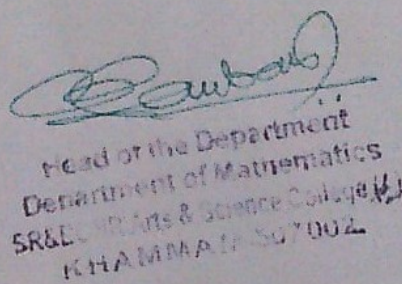 Head of the Department
Department of Mathematics
SR& Arts & Science College
KHAMMAM 507002